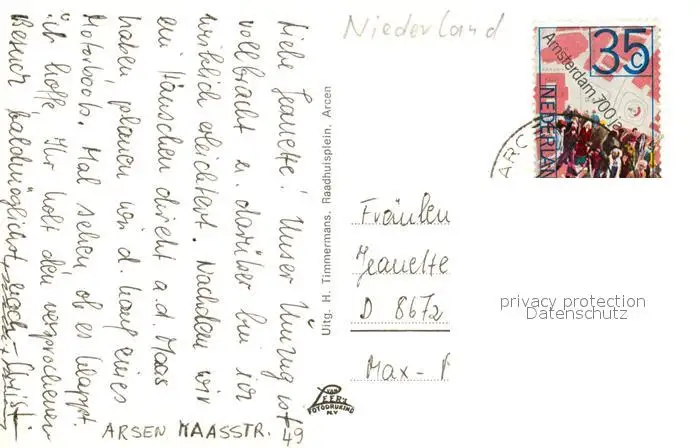 Niederland
35 c
Amsterdam 700 ja
NEDERLAN
ARC
Liebe Jeanette! Unser Umzug ist
vollbracht u. darüber bin ich
wirklich erleichtert. Nachdem wir
ein Häuschen direkt a.d. Maas
haben planen wir d. Kauf eines
Motorboots. Mal sehen ob es klappt.
Ich hoffe Ihr holt den versprochenen
Besuch baldmöglichst nach
ARSEN MAASSTR. 49
Uitg. H. Timmermans, Raadhuisplein, Arcen
VAN LEER'S
FOTODRUKIND
N.V.
Fräulein
Jeanette
D 8672
Max-
privacy protection
Datenschutz